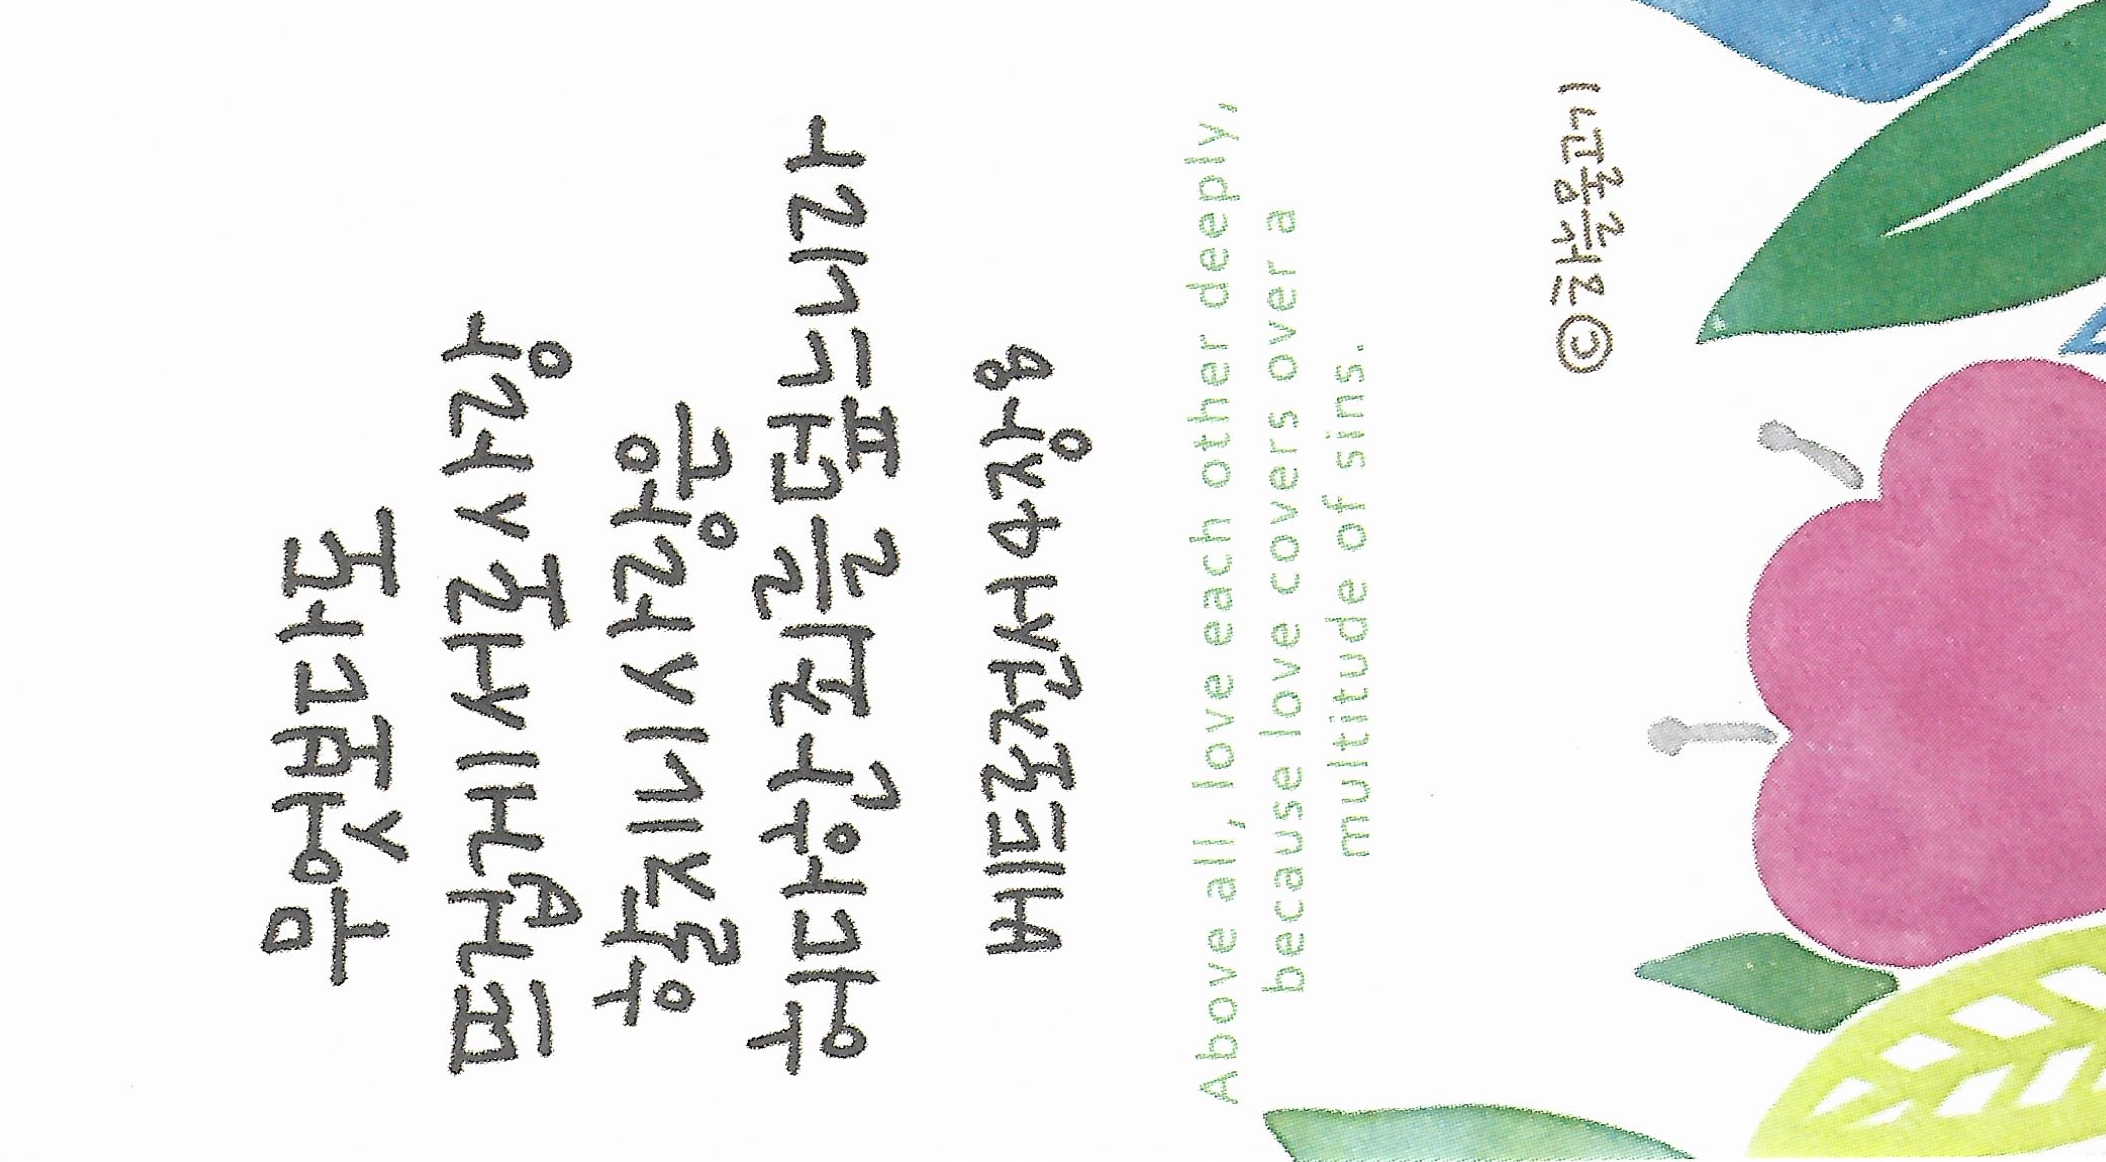 무엇보다도
뜨겁게 서로 사랑
할지니 사랑은
허다한 죄를 덮느니라
베드로전서 4장 8
Above all, love each other deeply,
because love covers over a
multitude of sins.
©하늘물고기